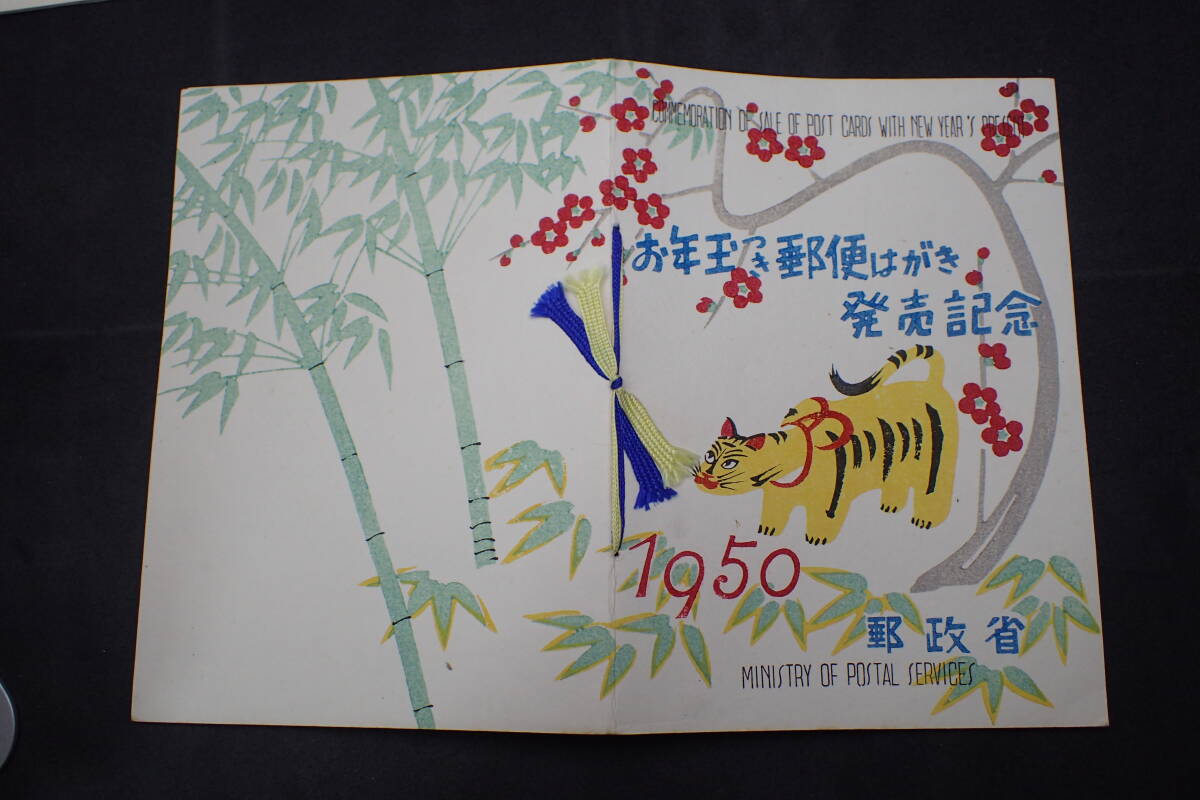 COMMEMORATION OF SALE OF POST CARDS WITH NEW YEAR'S PRESENT
お年玉つき郵便はがき
発売記念
1950
郵政省
MINISTRY OF POSTAL SERVICES